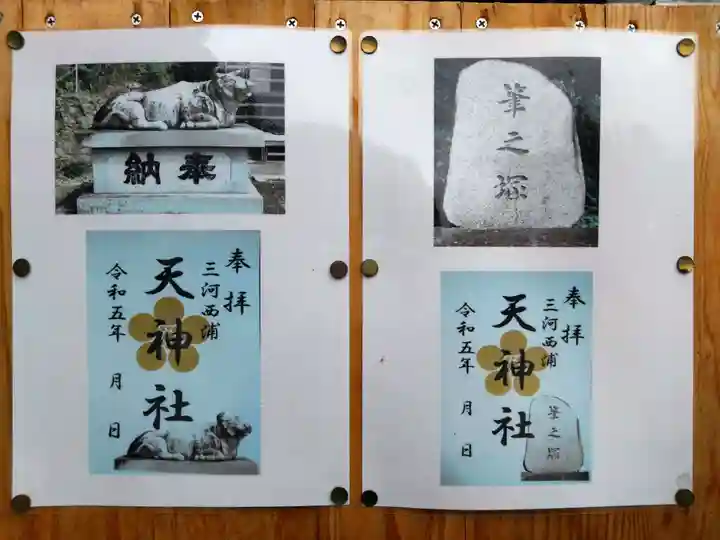 納奉
奉拝
三河西浦
天神社
令和五年 月 日
筆之塚
奉拝
三河西浦
天神社
令和五年 月 日
筆之塚